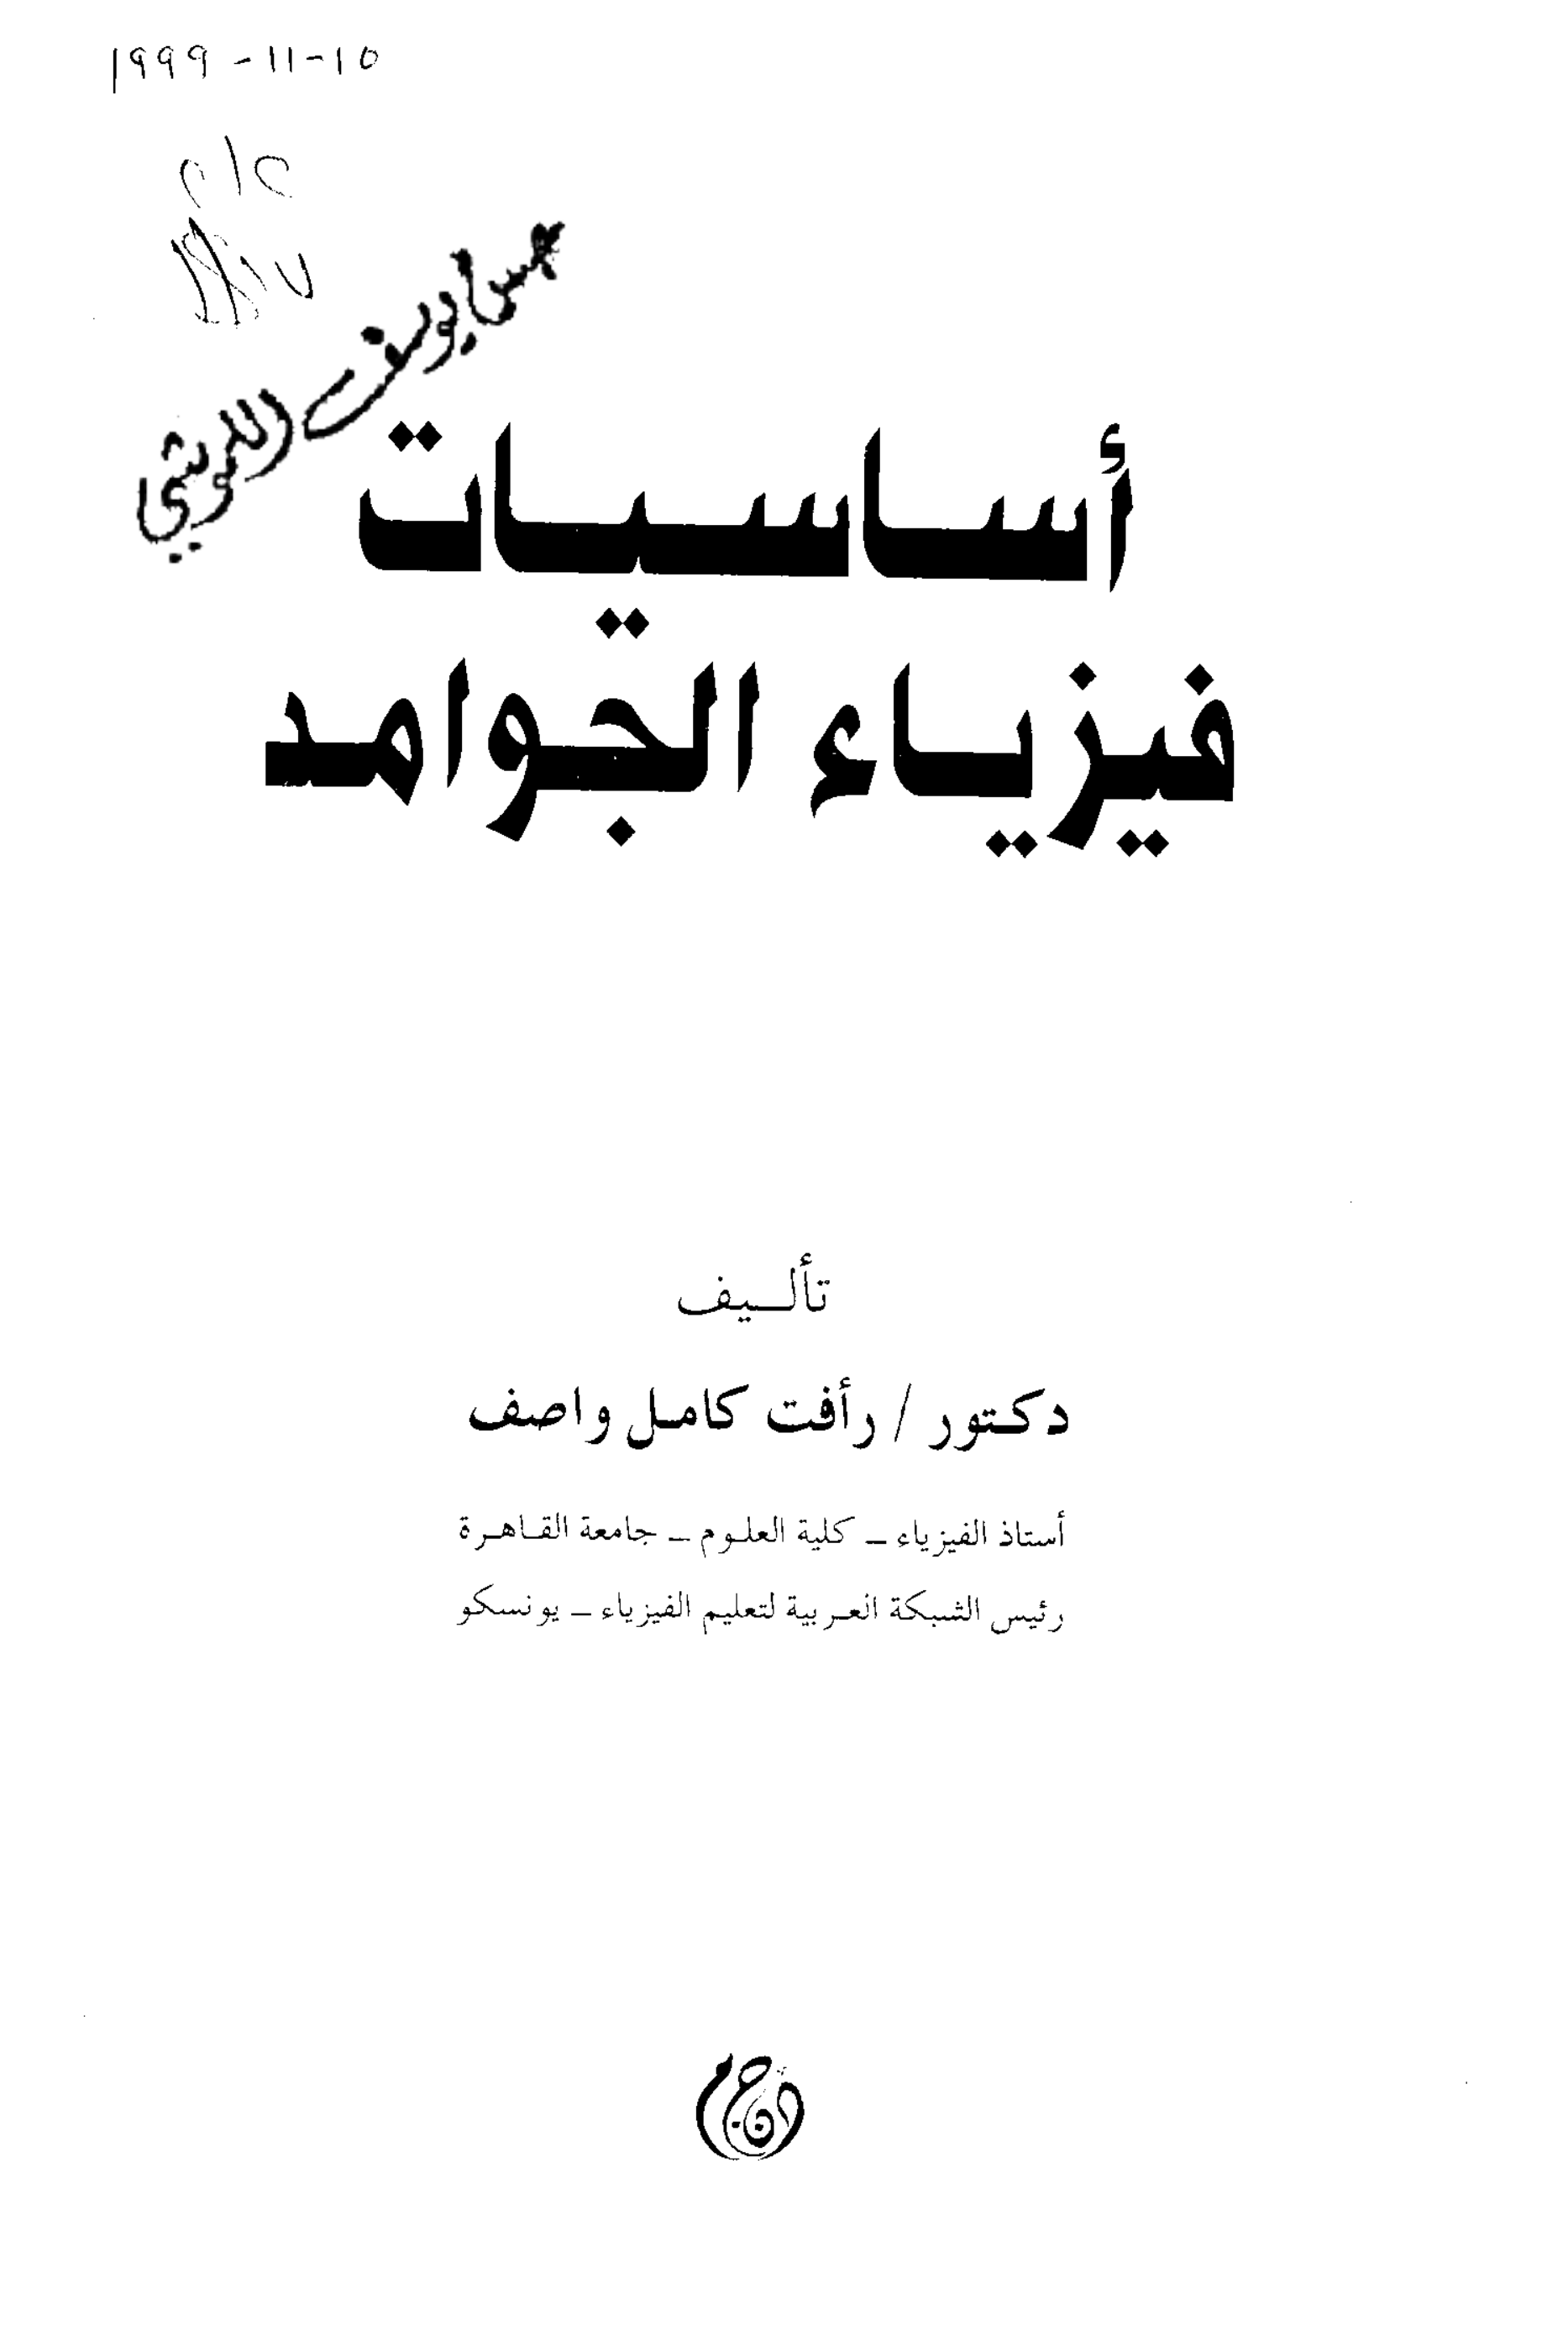 ١٩٩٩-١١-١٥
أساسيات
فيزياء الجوامد
تأليف
دكتور / رأفت كامل واصف
أستاذ الفيزياء - كلية العلوم - جامعة القاهرة
رئيس الشبكة العربية لتعليم الفيزياء - يونسكو